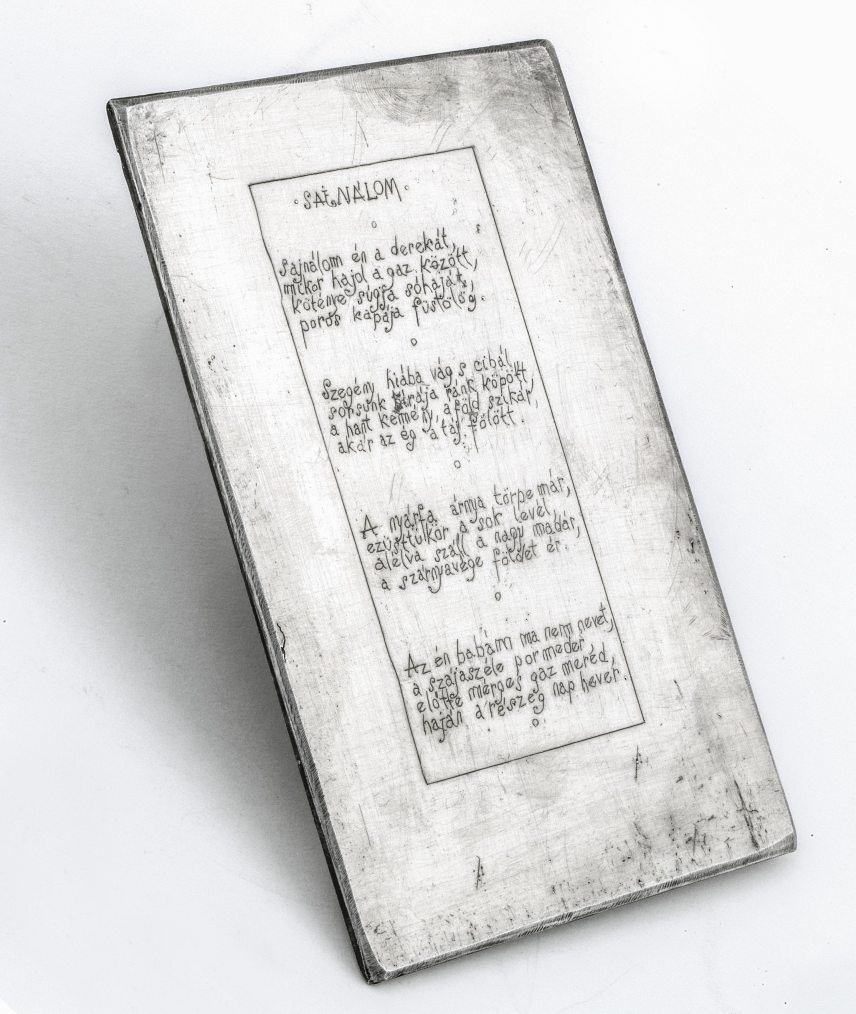 SAJNÁLOM
Sajnálom én a derekát,
mikor hajol a gaz között,
köténye súgja sóhaját,
poros kapája füstölög.
Szegény hiába vág s cibál,
sorsunk ránk köpött,
a hant kemény, a föld szikár,
akár az ég a táj fölött.
A nyárfa árnya törpe már,
ezüsttükör a sok levél,
alélva száll a nagy madár,
a szárnyavége földet ér.
Az én babám ma nem nevet,
a szájaszéle pormeder
előtte mérges gaz mered,
haján a részeg nap hever.